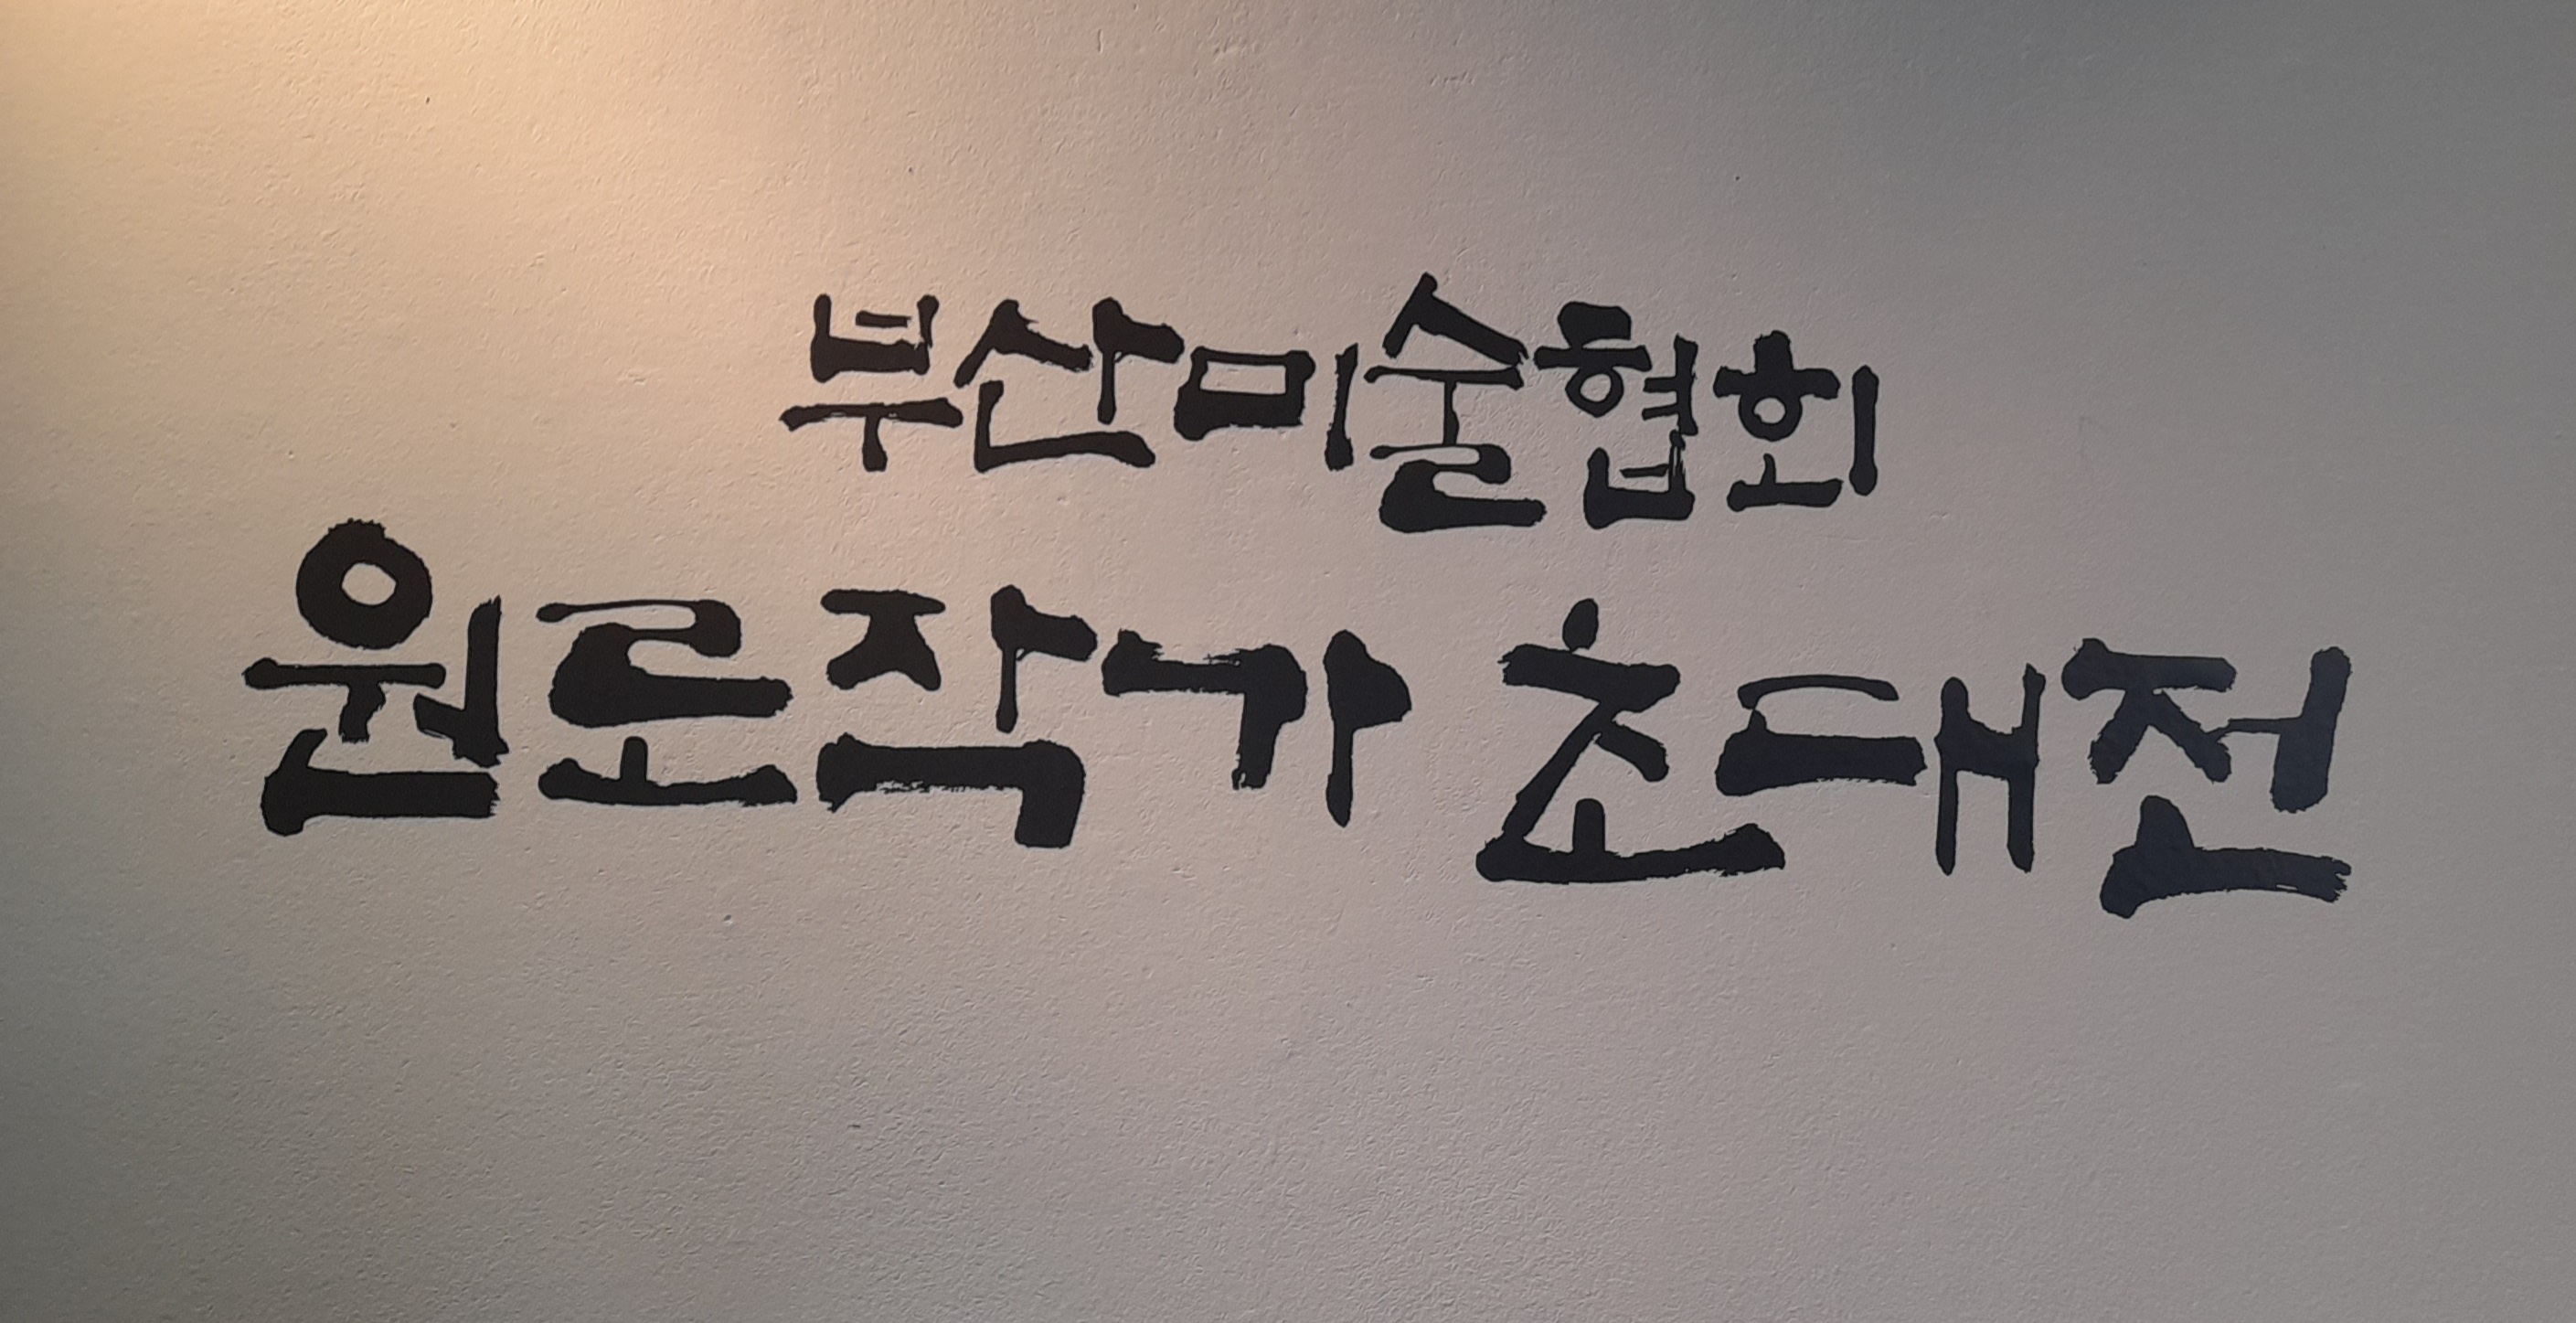 부산미술협회
원로작가 초대전